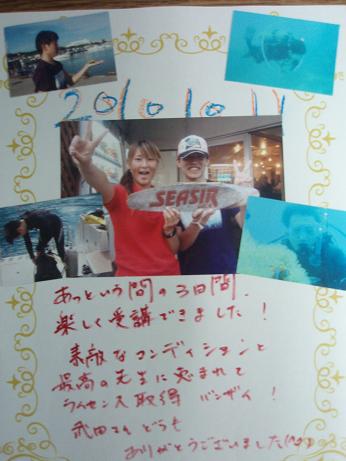 2010.10.11
SEASIR
あっという間の3日間、
楽しく受講できました！
素敵なコンディションと
最高の先生に恵まれて
ライセンス取得 バンザイ！
武田さん どうも
ありがとうございました(^o^)